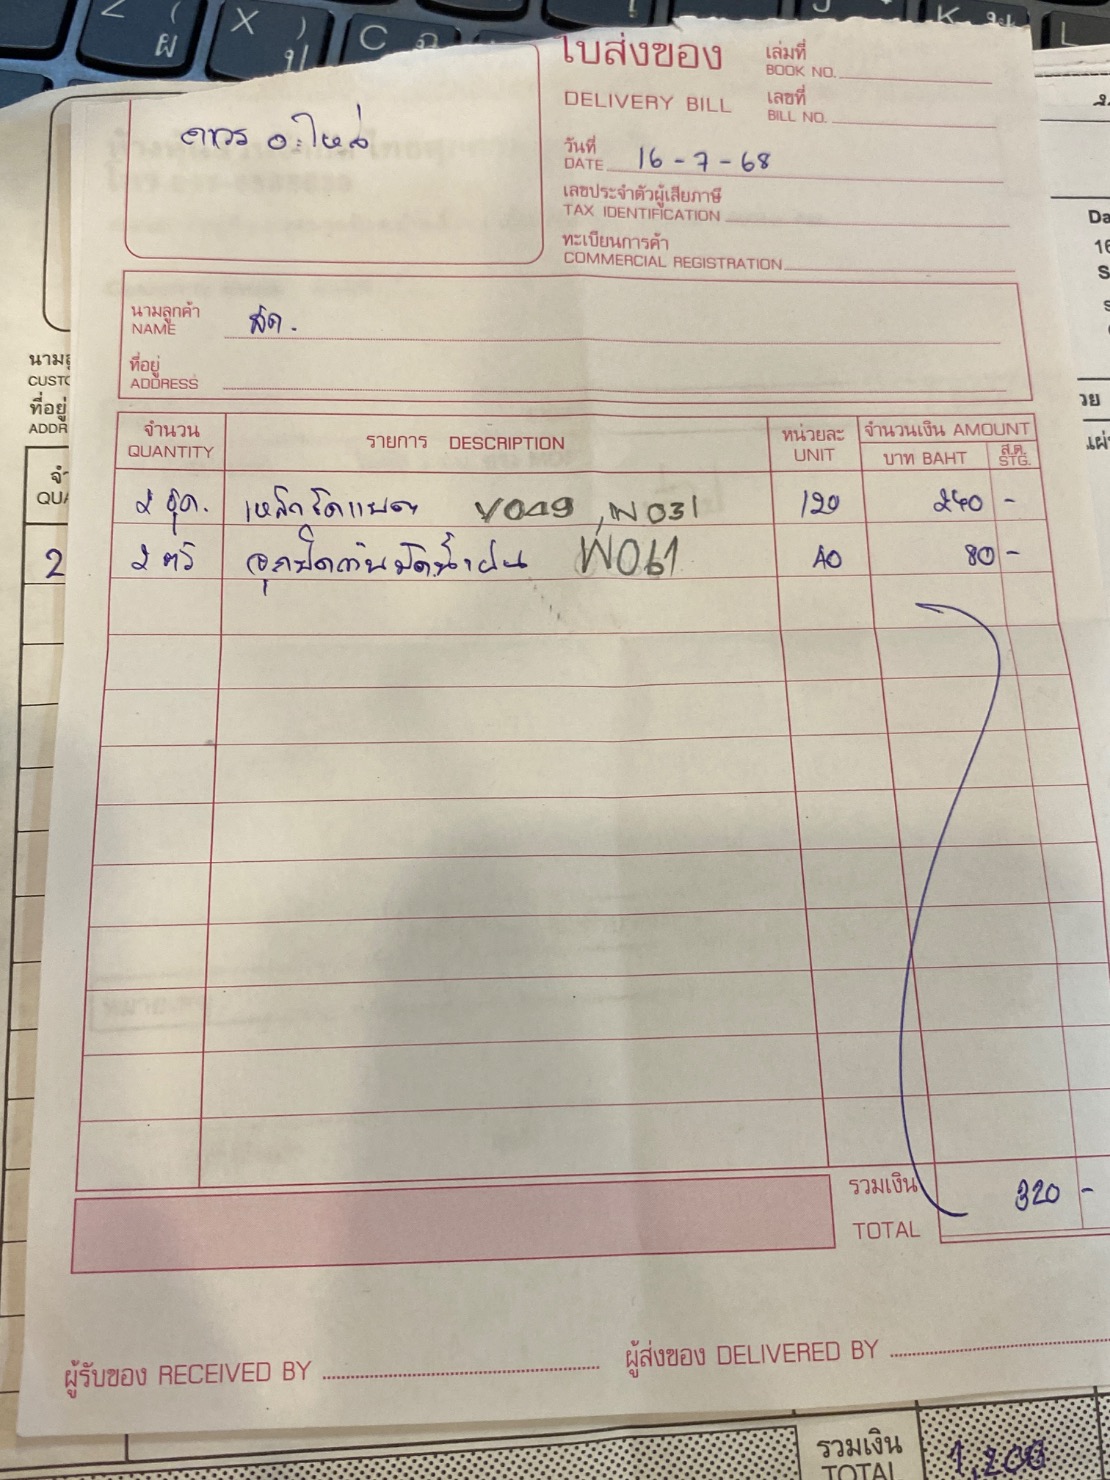 ใบส่งของ
DELIVERY BILL
เล่มที่
BOOK NO.
เลขที่
BILL NO.
วันที่
DATE 16-7-68
เลขประจำตัวผู้เสียภาษี
TAX IDENTIFICATION
ทะเบียนการค้า
COMMERCIAL REGISTRATION
อะไหล่
นามลูกค้า
NAME สด.
ที่อยู่
ADDRESS
จำนวน
QUANTITY
รายการ DESCRIPTION
หน่วยละ
UNIT
จำนวนเงิน AMOUNT
บาท BAHT
ส.ต.
STG.
2 ชุด. เหล็กรัดแหนบ V049, W031 120 240 -
2 ตัว W061 40 80 -
รวมเงิน
TOTAL
320 -
ผู้รับของ RECEIVED BY
ผู้ส่งของ DELIVERED BY
ที่อยู่
ADDR
2
รวมเงิน
TOTAL
1,200